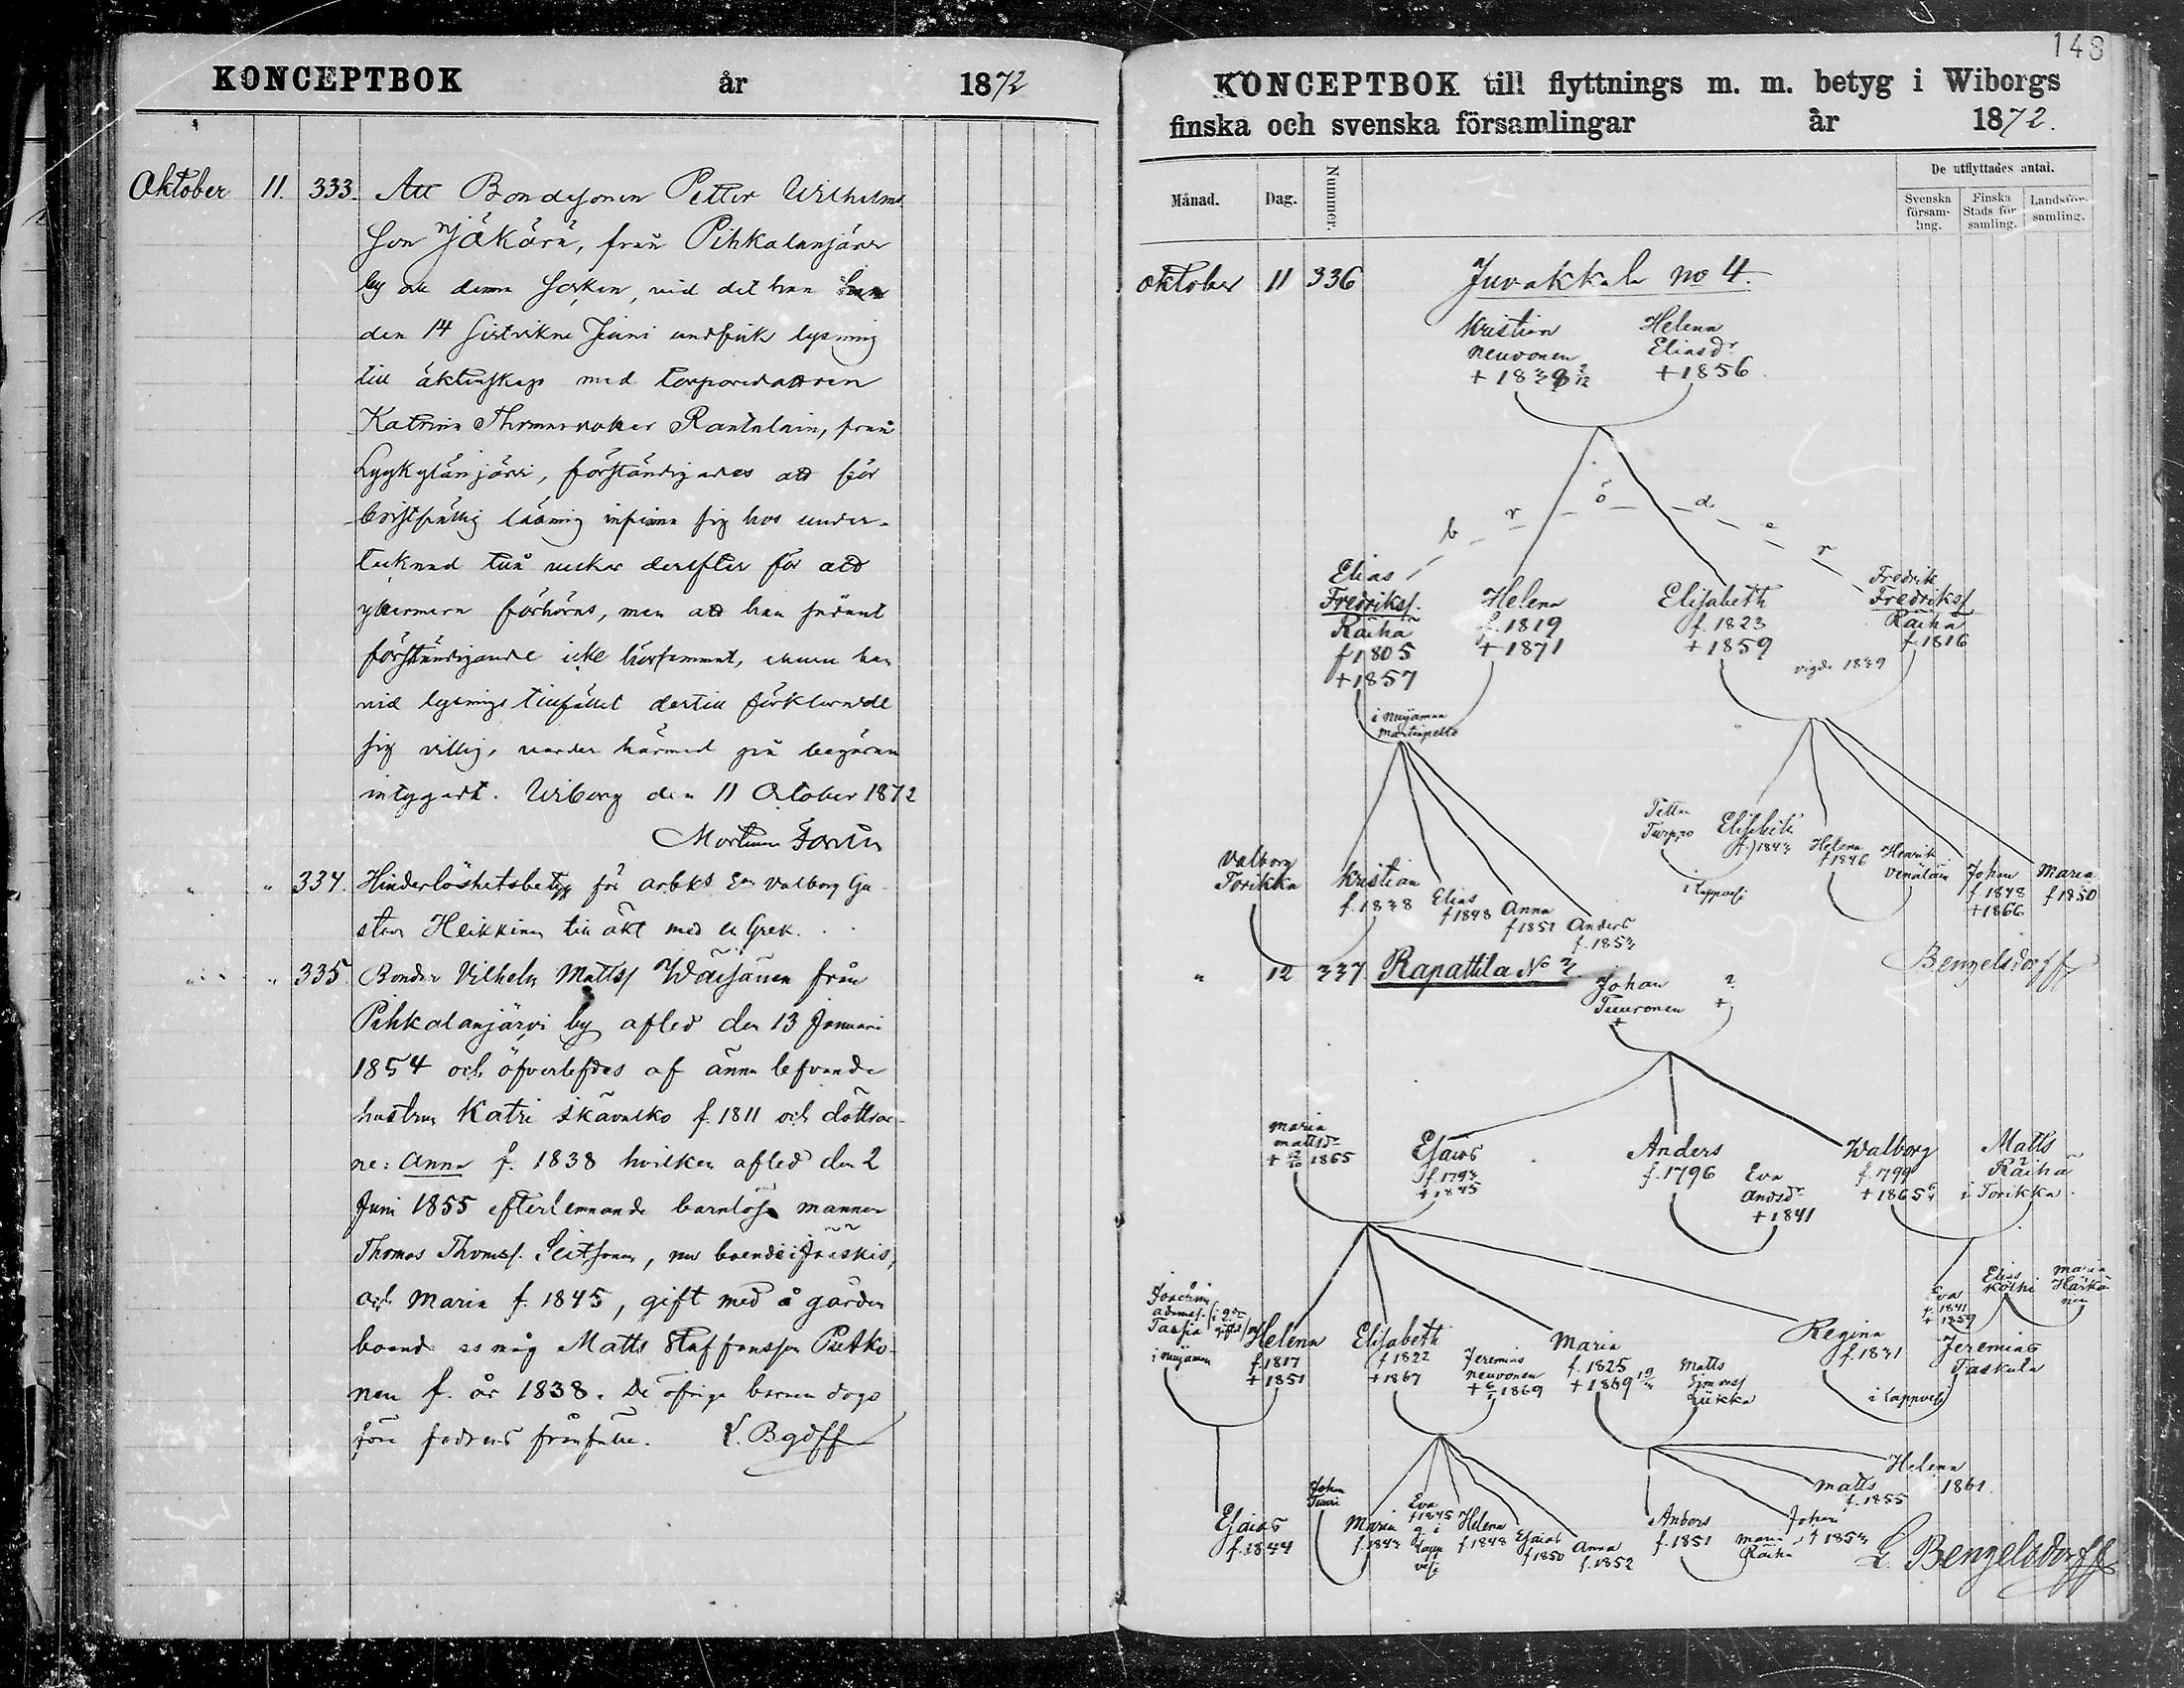 KONCEPTBOK år 1872
Oktober 11. 333. Att Bondesonen Petter Wilhelms
son Jäkärä, från Pihkalanjärvi
by och denna socken, vid det han
den 14 sistvikne Juni undfick lysning
till äktenskap med torparedattren
Katrina Thomasdotter Rantalain, från
Lyykylänjärvi, förständigades att för
bristfällig läsning infinna sig hos under-
tecknad två veckor derefter för att
yttermera förhöras, men att han sådant
förständigande icke hörsammat, ehuru han
vid lysningstillfället dertill förklarade
sig villig, varder härmed på begäran
intygadt. Wiborg den 11 October 1872
334. Hinderlöshetsbetyg för arbkt Valborg Gu-
stavs Heikkinen till äkt med en Grek.
335. Bonden Vilhelm Mattss Wäisänen från
Pihkalanjärvi by afled den 13 Januari
1854 och öfverlefdes af ännu lefvande
hustrun Katri Ikävalko f. 1811 och döttrar-
ne: Anna f. 1838 hvilken afled den 2
Juni 1855 efterlemnande barnlös mannen
Thomas Thomass. Seitsonen, nu boende i Jääskis,
och Maria f. 1845, gift med å gården
boende måg Matts Staffansson Pietko-
nen f. år 1838. De öfriga barnen dogo
före fadrens frånfälle. L. Bgdff
148
KONCEPTBOK till flyttnings m. m. betyg i Wiborgs
finska och svenska församlingar år 1872.
Månad. Dag. Nummer. De utflyttades antal.
Svenska församling. Finska Stads församling. Landsförsamling.
Oktober 11 336 Juvakkala no 4.
Kristian Neuvonen
Helena Eliasdr +1856
b r ö d e r
Elias Fredrikss. Räihä f 1805 +1857
Helena f. 1819 +1871
Elisabeth f. 1823 +1859
Fredrik Fredrikss Räihä f. 1816
vigde 1839
i Nuijamaa Martinpelto
Valborg Torikka
Kristian f. 1838
Elias f 1848
Anna f 1851
Anders f. 1853
Petter Turppo
Elisabeth f. 1843
i Lappvesi
Helena f 1846
Henrik Venäläin
Johan f. 1848 +1866
Maria f 1850
Bengelsdorff
" 12 337 Rapattila No 2.
Johan Tuuronen +
? +
Maria Mattsdr + 12/10 1865
Esaias f. 1793 +1845
Anders f. 1796
Eva Andsdr +1841
Walborg f. 1799 +1865
Matts Räihä i Torikka.
Joachim Adamss. Tassia
i Nuijamaa
Helena f. 1817 +1851
Elisabeth f 1822 +1867
Jeremias Neuvonen 1869
Maria f. 1825 +1869
Matts Simonss Liikka
Regina f. 1831
i Lappvesi
Eva f. 1841 +1859
Elias Köthi
Maria Härkönen
Jeremias Taskula
Esaias f. 1844
Johan Tuuri
Maria f. 1843
Eva f 1845 g. i Lappvesi
Helena f. 1848
Esaias f 1850
Anna f. 1852
Anders f. 1851
Maria Räihä
Johan f 1853
Matts f. 1855
Helena 1861.
L. Bengelsdorff